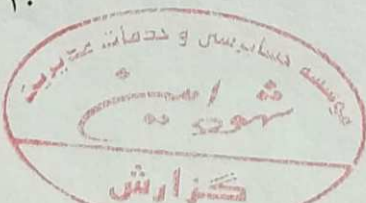 ۱۰
موسسه حسابرسی و خدمات مدیریت
شهود امین
گزارش